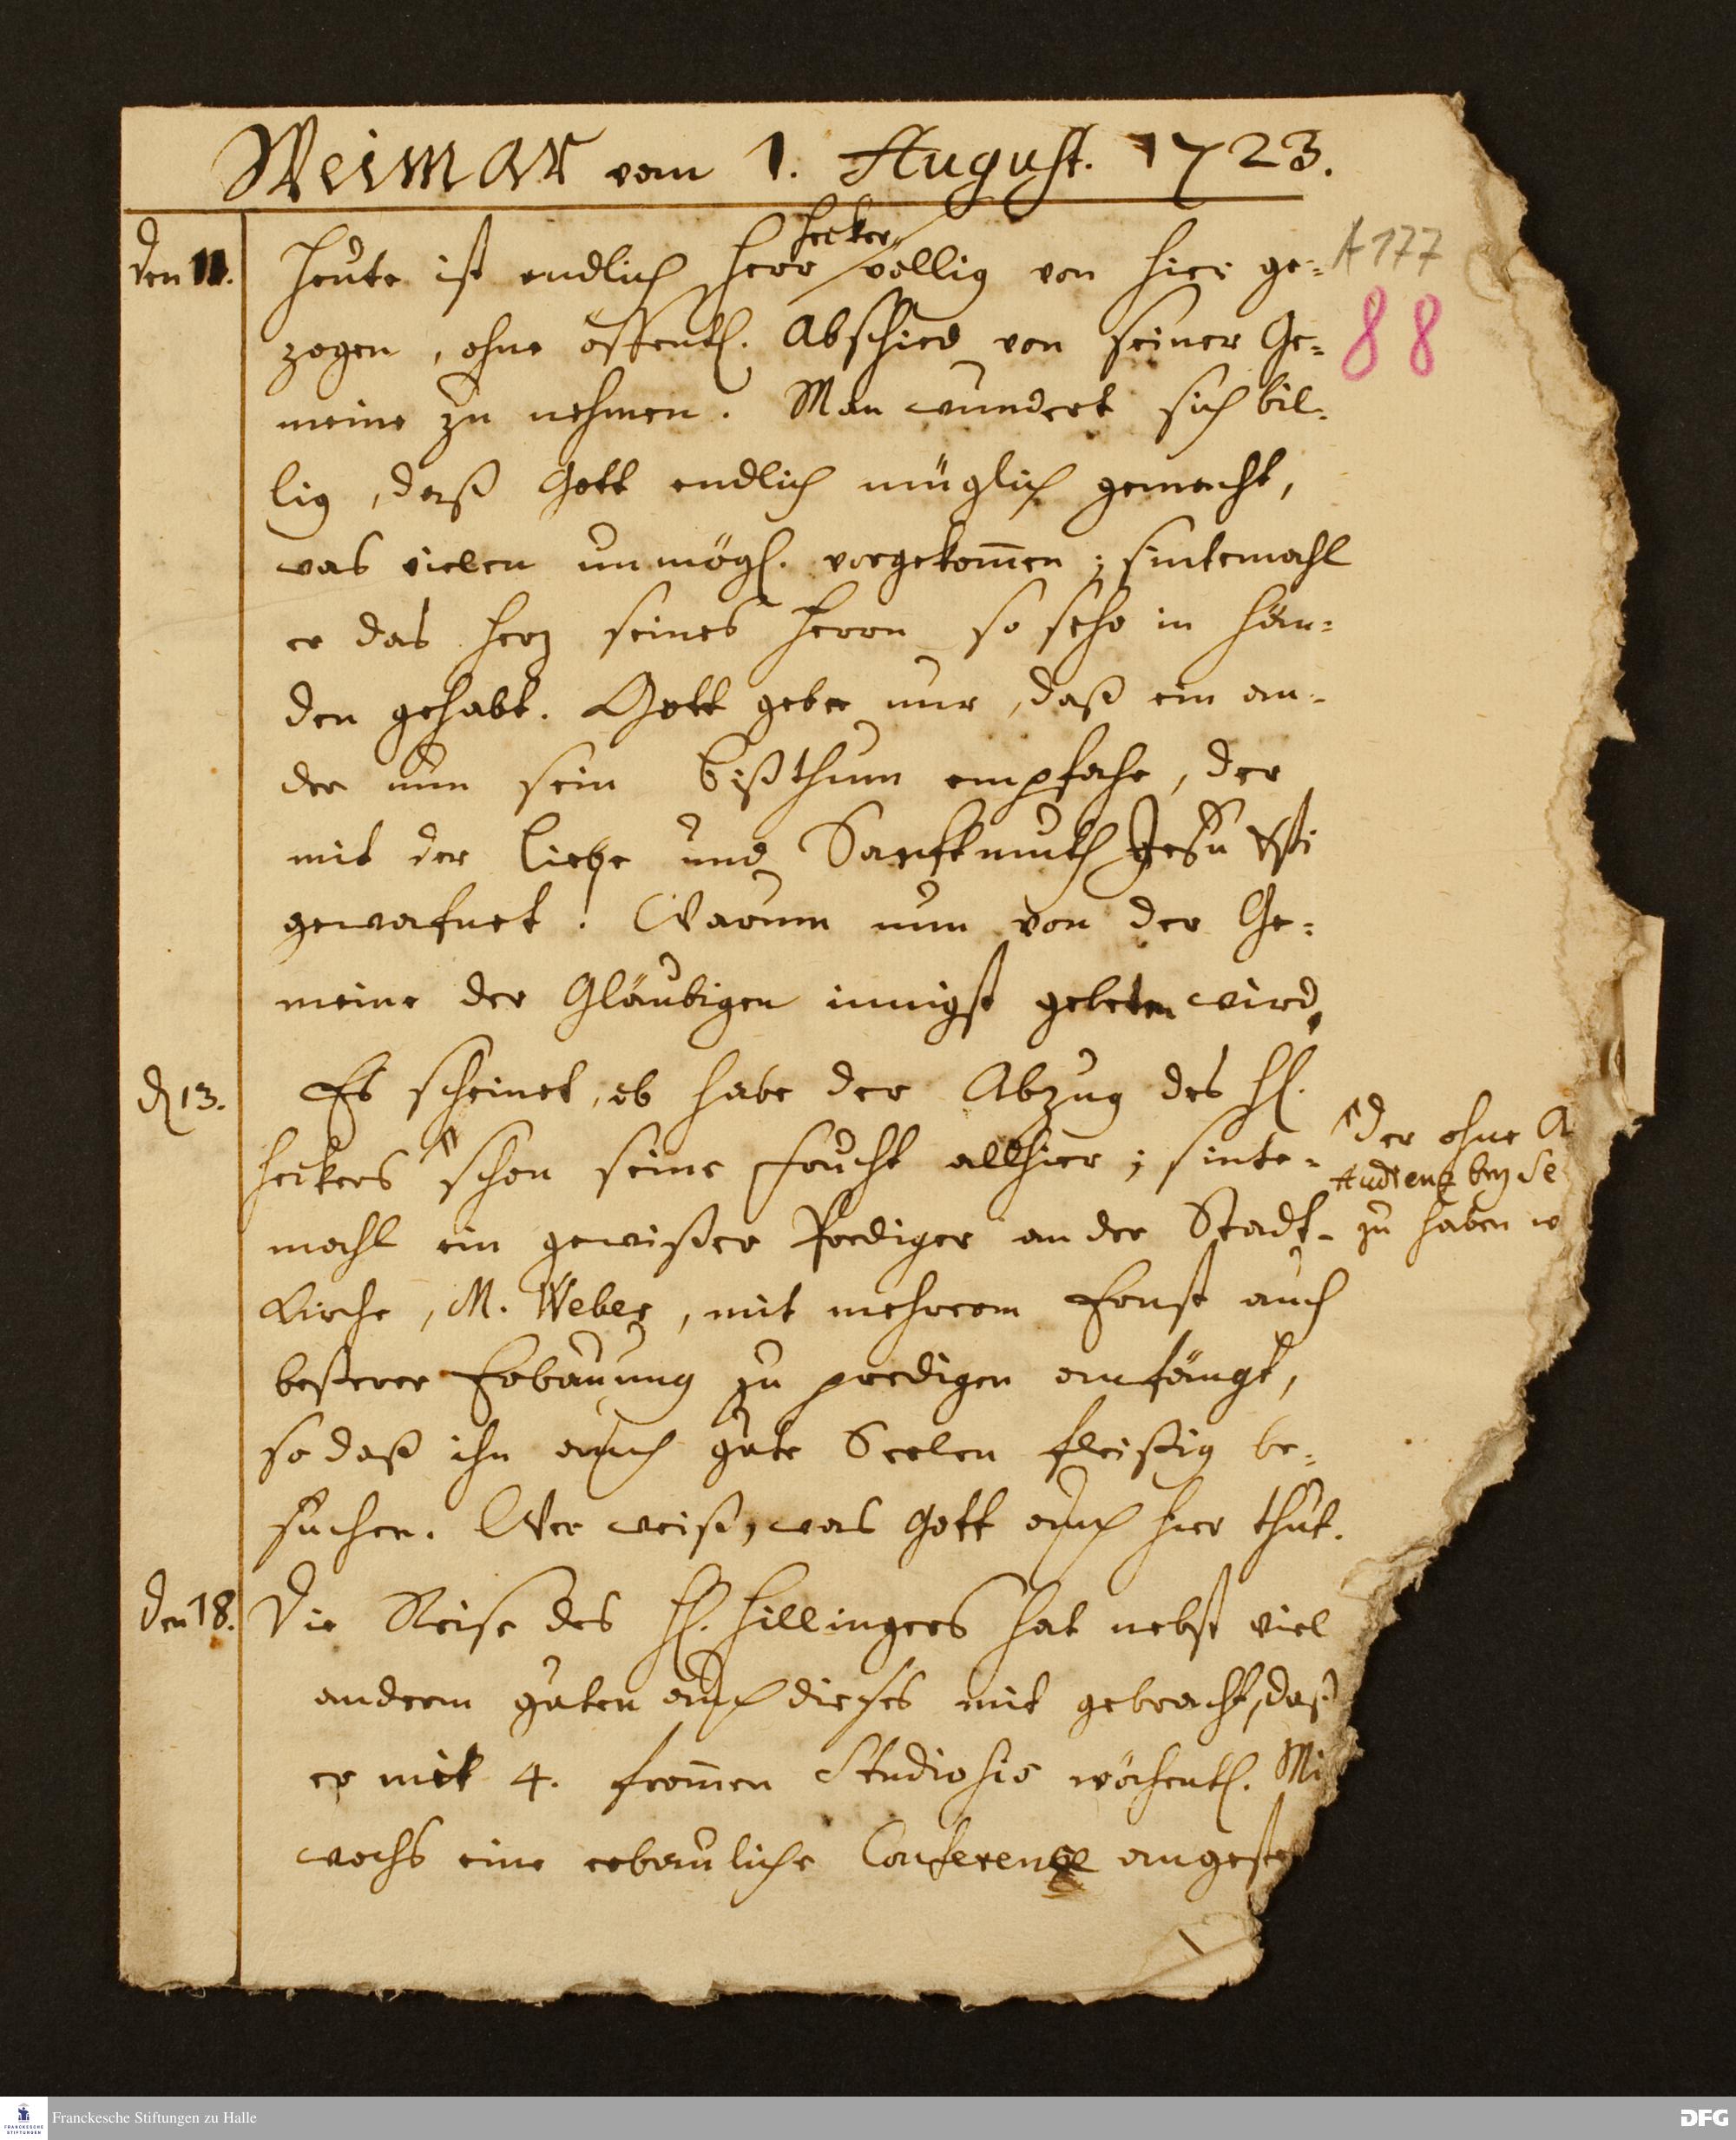 Weimar vom 1. August. 1723.
A 177
88
den 11. Heute ist endlich Herr Hecker völlig von hier ge=
zogen, ohne öffentl. Abschied von seiner Ge=
meine zu nehmen. Man wundert sich bil=
lig, daß Gott endlich müglich gemacht,
was vielen unmögl. vorgekom̄en; sintemahl
er das Herz seines Herrn so sehr in Hän=
den gehabt. Gott gebe nur, daß ein an=
der nun sein Bißthum empfahe, der
mit der Liebe und Sanftmuth Jesu Xsti
gewafnet! Warum nun von der Ge=
meine der Gläubigen innigst gebeten wird.
d 13. Es scheinet, es habe der Abzug des H.
Heckers schon seine Frucht allhier; sinte=
mahl ein gewißer Prediger an der Stadt=
Kirche, M. Weber, mit mehrerm Ernst auch
beßerer Erbauung zu predigen anfängt,
so daß ihn auch gute Seelen fleißig be=
suchen. Wer weiß, was Gott auch hier thut.
der ohne A
Audienz bey Se
zu haben w
den 18. Die Reise des H. Hillingers hat nebst viel
anderm guten auch dieses mit gebracht, daß
er mit 4. from̄en Studiosis wöchentl. Mi
wochs eine erbauliche Conferenze angeste
Franckesche Stiftungen zu Halle
FRANCKESCHE
STIFTUNGEN
DFG